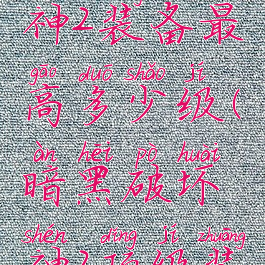 神2装备最
gāo duō shǎo jí
高多少级(
àn hēi pò huài
暗黑破坏
shén dǐng jí zhuāng
神2顶级装